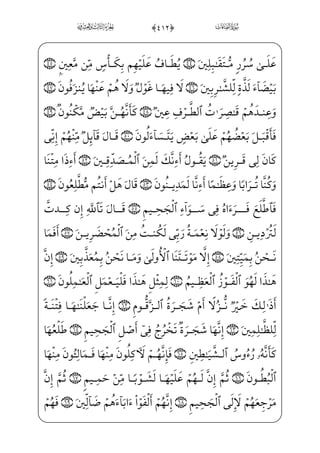 ﴿٤١٢﴾
عَلَىٰ سُرُرٍ مُّتَقَـٰبِلِينَ ۝٤٤ يُطَافُ عَلَيْهِم بِكَأْسٍ مِّن مَّعِينٍۭ ۝٤٥
بَيْضَآءَ لَذَّةٍ لِّلشَّـٰرِبِينَ ۝٤٦ لَا فِيهَا غَوْلٌ وَلَا هُمْ عَنْهَا يُنزَفُونَ ۝٤٧
وَعِندَهُمْ قَـٰصِرَٰتُ ٱلطَّرْفِ عِينٌ ۝٤٨ كَأَنَّهُنَّ بَيْضٌ مَّكْنُونٌ ۝٤٩
فَأَقْبَلَ بَعْضُهُمْ عَلَىٰ بَعْضٍ يَتَسَآءَلُونَ ۝٥٠ قَالَ قَآئِلٌ مِّنْهُمْ إِنِّى
كَانَ لِى قَرِينٌ ۝٥١ يَقُولُ أَءِنَّكَ لَمِنَ ٱلْمُصَدِّقِينَ ۝٥٢ أَءِذَا مِتْنَا
وَكُنَّا تُرَابًا وَعِظَـٰمًا أَءِنَّا لَمَدِينُونَ ۝٥٣ قَالَ هَلْ أَنتُم مُّطَّلِعُونَ ۝٥٤
فَٱطَّلَعَ فَرَءَاهُ فِى سَوَآءِ ٱلْجَحِيمِ ۝٥٥ قَالَ تَٱللَّهِ إِن كِدتَّ
لَتُرْدِينِ ۝٥٦ وَلَوْلَا نِعْمَةُ رَبِّى لَكُنتُ مِنَ ٱلْمُحْضَرِينَ ۝٥٧ أَفَمَا
نَحْنُ بِمَيِّتِينَ ۝٥٨ إِلَّا مَوْتَتَنَا ٱلْأُولَىٰ وَمَا نَحْنُ بِمُعَذَّبِينَ ۝٥٩ إِنَّ
هَـٰذَا لَهُوَ ٱلْفَوْزُ ٱلْعَظِيمُ ۝٦٠ لِمِثْلِ هَـٰذَا فَلْيَعْمَلِ ٱلْعَـٰمِلُونَ ۝٦١
أَذَٰلِكَ خَيْرٌ نُّزُلًا أَمْ شَجَرَةُ ٱلزَّقُّومِ ۝٦٢ إِنَّا جَعَلْنَـٰهَا فِتْنَةً
لِّلظَّـٰلِمِينَ ۝٦٣ إِنَّهَا شَجَرَةٌ تَخْرُجُ فِىٓ أَصْلِ ٱلْجَحِيمِ ۝٦٤ طَلْعُهَا
كَأَنَّهُۥ رُءُوسُ ٱلشَّيَـٰطِينِ ۝٦٥ فَإِنَّهُمْ لَـَٔاكِلُونَ مِنْهَا فَمَالِـُٔونَ مِنْهَا
ٱلْبُطُونَ ۝٦٦ ثُمَّ إِنَّ لَهُمْ عَلَيْهَا لَشَوْبًا مِّنْ حَمِيمٍ ۝٦٧ ثُمَّ إِنَّ
مَرْجِعَهُمْ لَإِلَى ٱلْجَحِيمِ ۝٦٨ إِنَّهُمْ أَلْفَوْا۟ ءَابَآءَهُمْ ضَآلِّينَ ۝٦٩ فَهُمْ